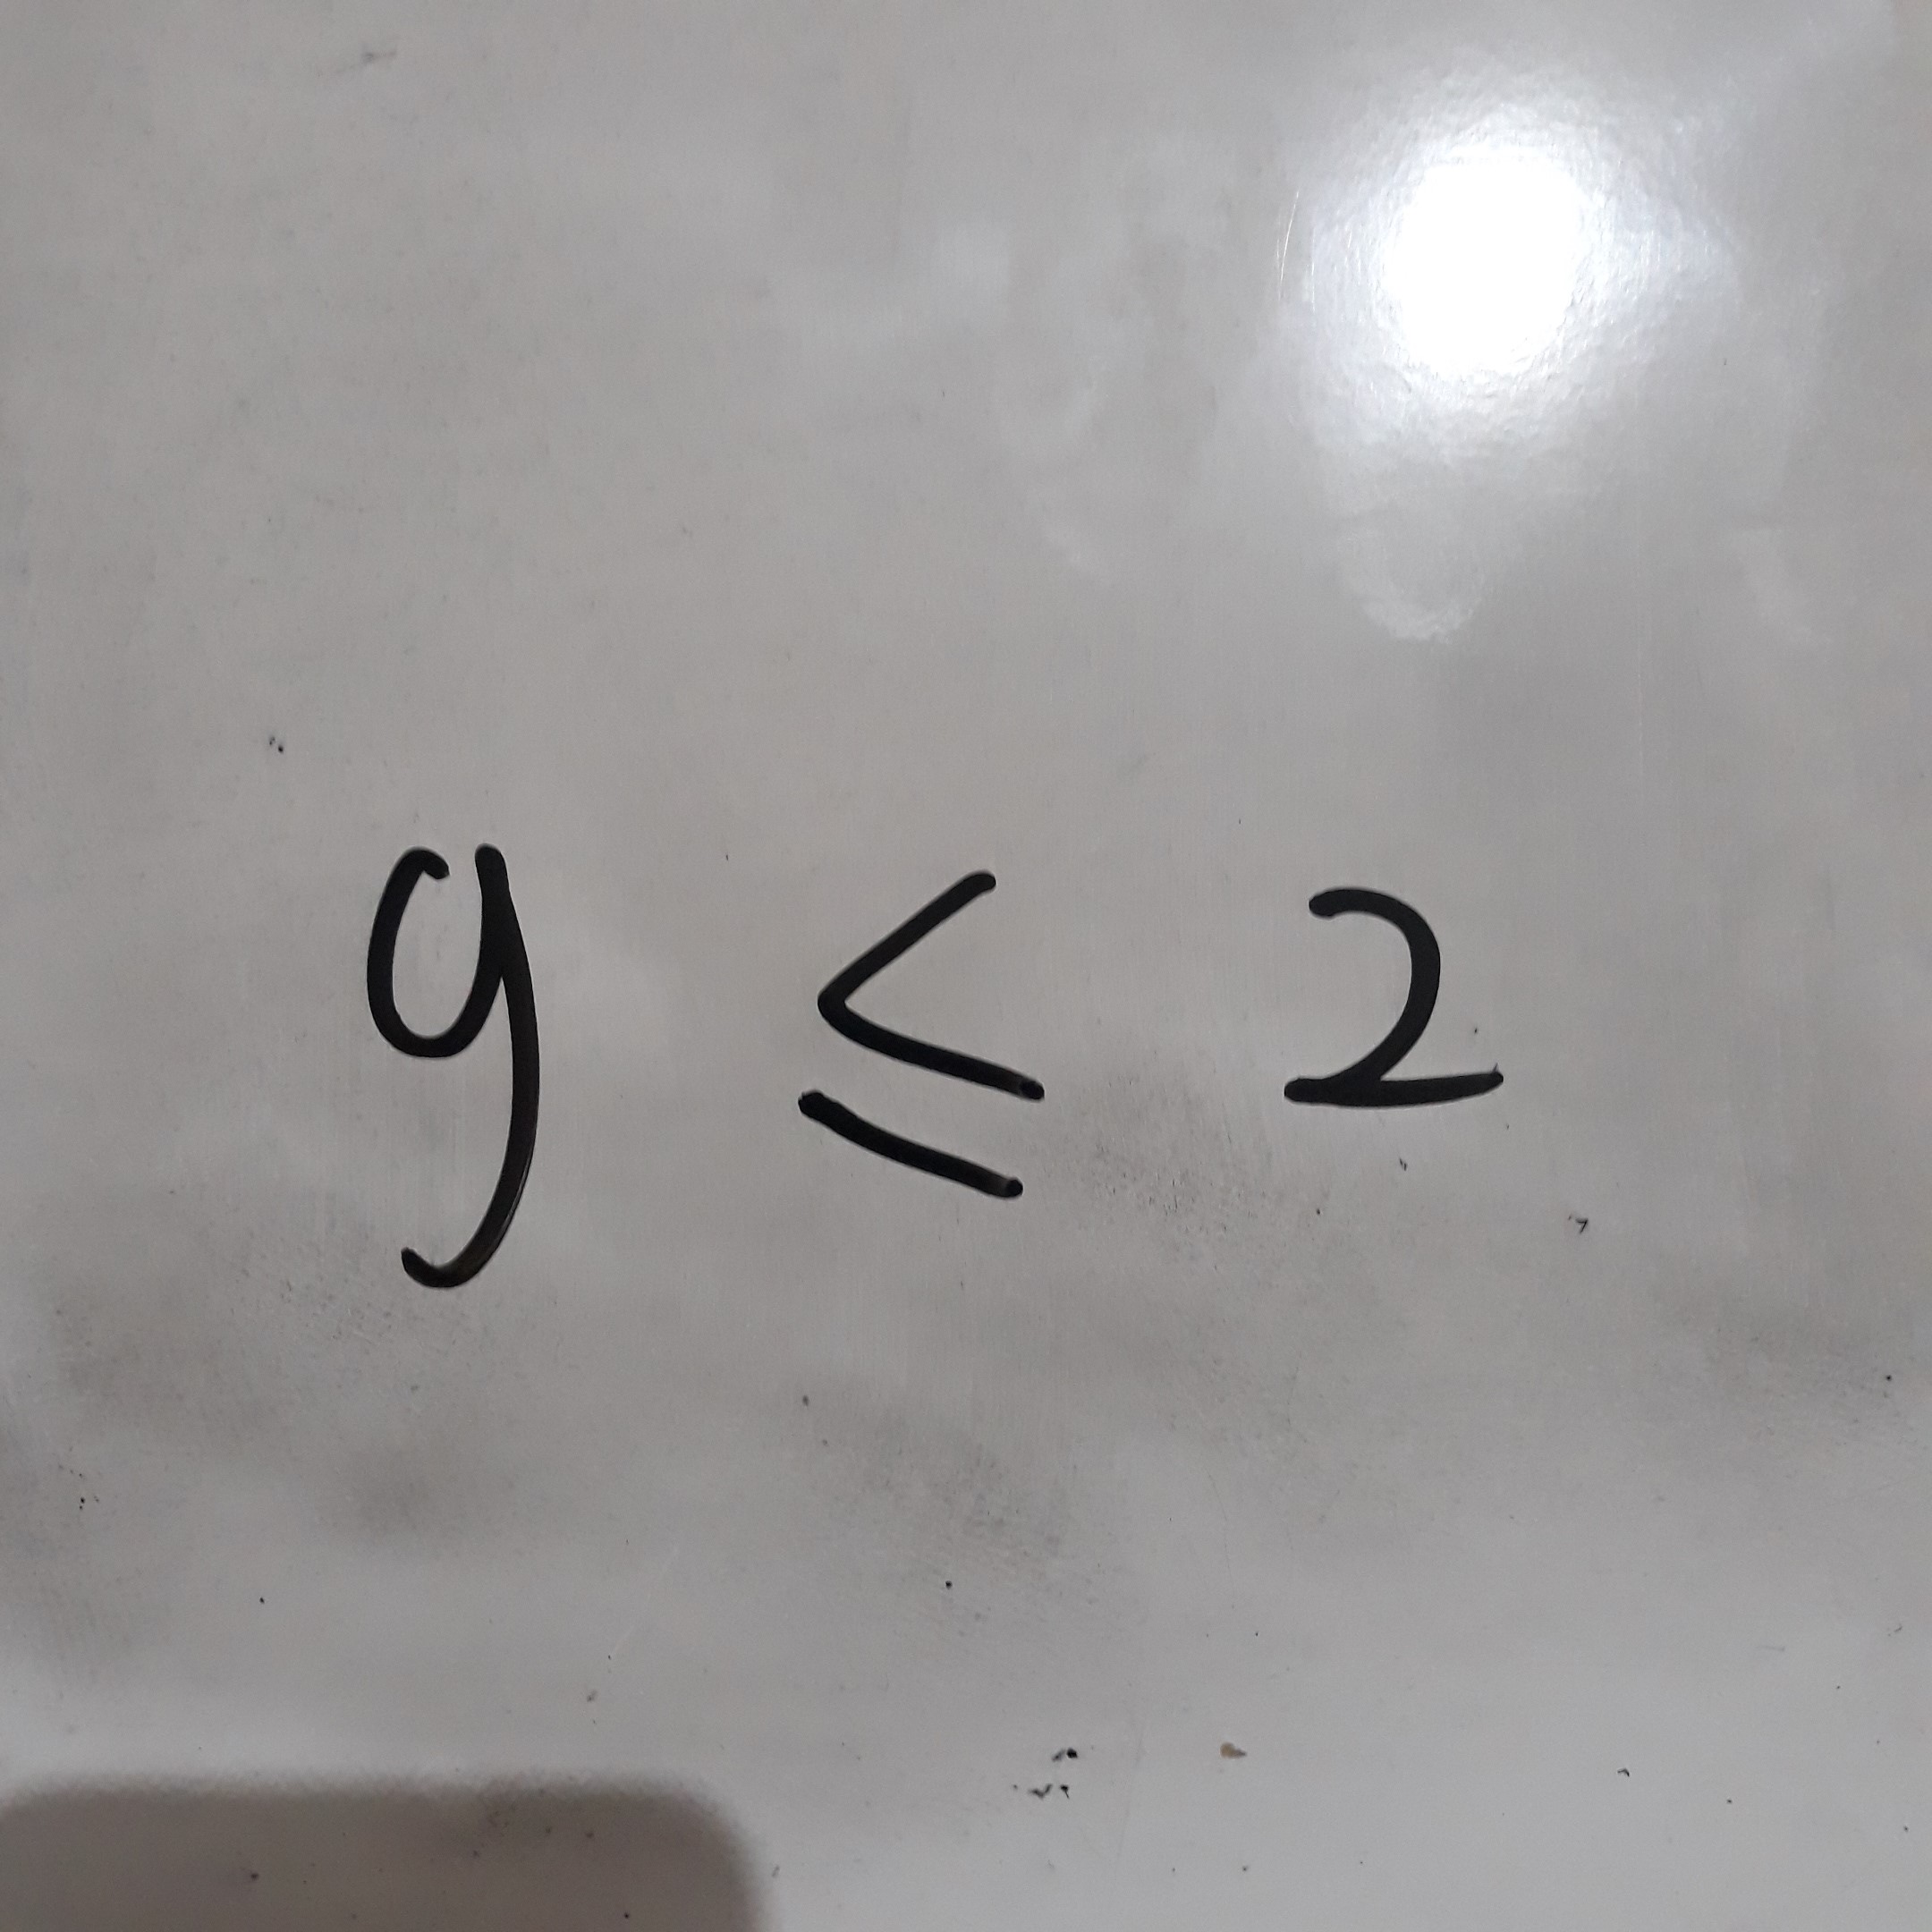 y ≤ 2